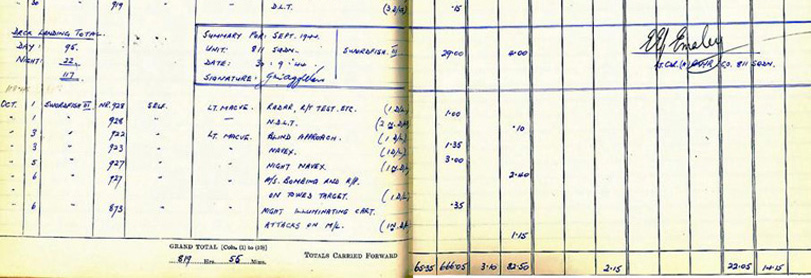 " 30 " 919 " " D.L.T. (3 D/L) .15
DECK LANDING TOTAL.
DAY: 95.
NIGHT: 22
117
SUMMARY FOR: SEPT. 1944.
UNIT: 811 SQDN. SWORDFISH III 29.00 6.00
DATE: 30.9.44.
SIGNATURE:
LT. CDR. (A) R.N.V.R. C.O. 811 SQDN.
OCT. 1 SWORDFISH III NF.928 SELF. LT. MACVE. RADAR, R/T TEST. ETC. (1 D/L) 1.00
" 1 " 928 " " N.D.L.T. .10
" 3 " 922 " LT. MACVE. BLIND APPROACH. (1 D/L) 1.35
" 3 " 923 " " NAVEX. (1 D/L) 3.00
" 5 " 927 " " NIGHT NAVEX. 2.40
" 6 " 927 " " BOMBING AND
ON TOWED TARGET. (1 D/L) .35
" 6 " 873 " " NIGHT ILLUMINATING CERT.
ATTACKS ON M/L. 1.15
GRAND TOTAL [Cols. (1) to (10)]
819 Hrs. 55 Mins.
TOTALS CARRIED FORWARD 65.35 666.05 3.10 82.50 2.15 22.05 14.15